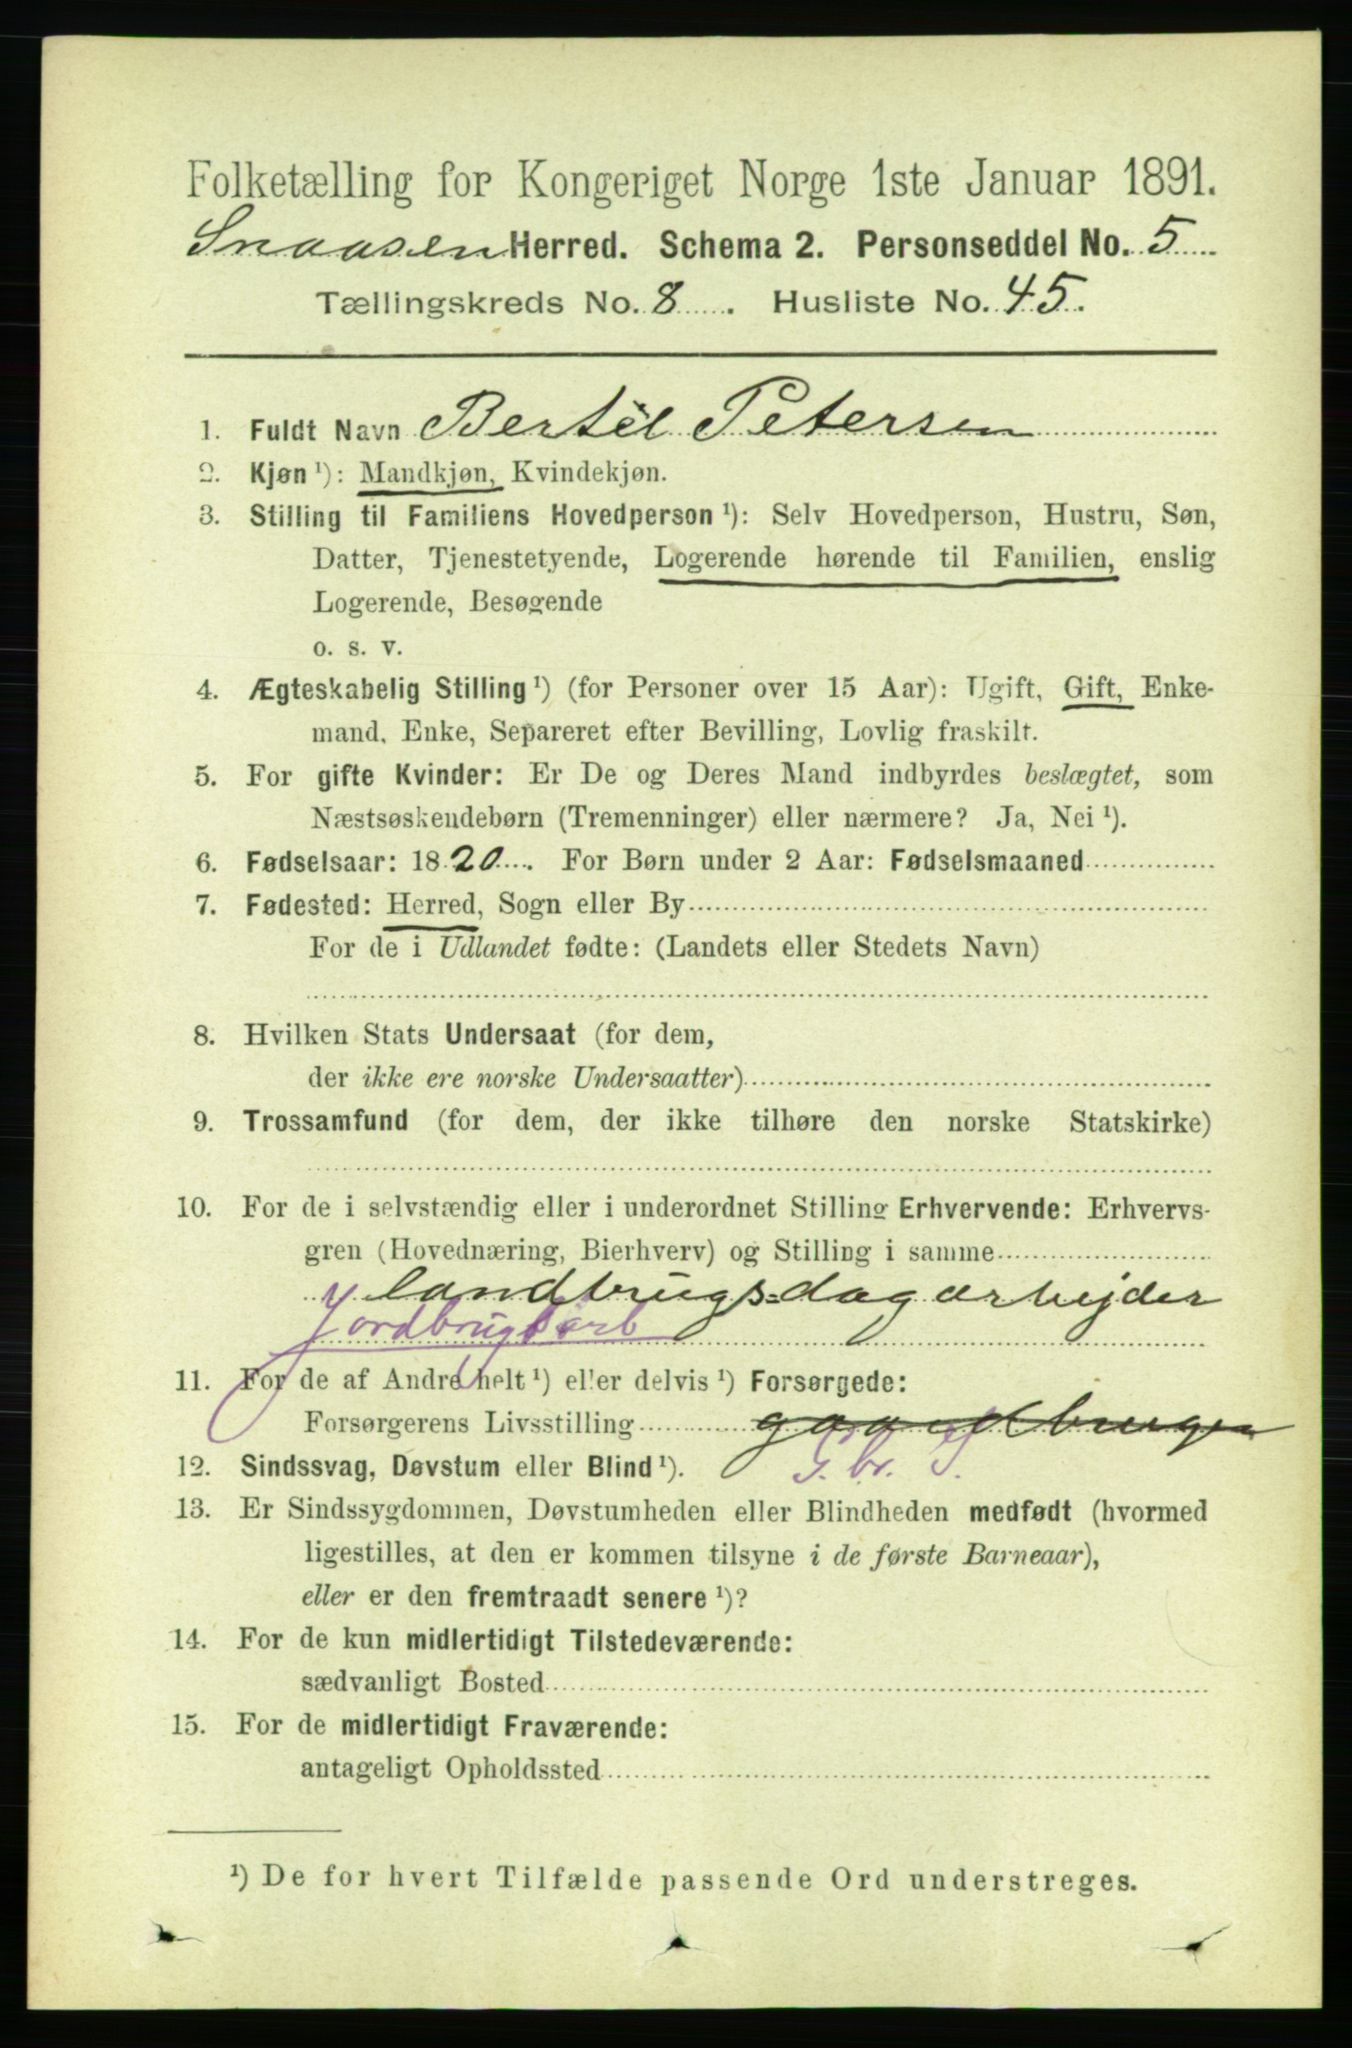 Folketælling for Kongeriget Norge 1ste Januar 1891.
Snaasen Herred. Schema 2. Personseddel No. 5
Tællingskreds No. 8. Husliste No. 45.
1. Fuldt Navn Bertel Petersen
2. Kjøn ¹): Mandkjøn, Kvindekjøn.
3. Stilling til Familiens Hovedperson ¹): Selv Hovedperson, Hustru, Søn,
Datter, Tjenestetyende, Logerende hørende til Familien, enslig
Logerende, Besøgende
o. s. v.
4. Ægteskabelig Stilling ¹) (for Personer over 15 Aar): Ugift, Gift, Enke-
mand, Enke, Separeret efter Bevilling, Lovlig fraskilt.
5. For gifte Kvinder: Er De og Deres Mand indbyrdes beslægtet, som
Næstsøskendebørn (Tremenninger) eller nærmere? Ja, Nei ¹).
6. Fødselsaar: 1820. For Børn under 2 Aar: Fødselsmaaned
7. Fødested: Herred, Sogn eller By
For de i Udlandet fødte: (Landets eller Stedets Navn)
8. Hvilken Stats Undersaat (for dem,
der ikke ere norske Undersaatter)
9. Trossamfund (for dem, der ikke tilhøre den norske Statskirke)
10. For de i selvstændig eller i underordnet Stilling Erhvervende: Erhvervs-
gren (Hovednæring, Bierhverv) og Stilling i samme
landbrugs=dagarbejder
Jordbrugsarb
11. For de af Andre helt ¹) eller delvis ¹) Forsørgede:
Forsørgerens Livsstilling gaardbruger
12. Sindssvag, Døvstum eller Blind ¹). G. br. S.
13. Er Sindssygdommen, Døvstumheden eller Blindheden medfødt (hvormed
ligestilles, at den er kommen tilsyne i de første Barneaar),
eller er den fremtraadt senere ¹)?
14. For de kun midlertidigt Tilstedeværende:
sædvanligt Bosted
15. For de midlertidigt Fraværende:
antageligt Opholdssted
¹) De for hvert Tilfælde passende Ord understreges.